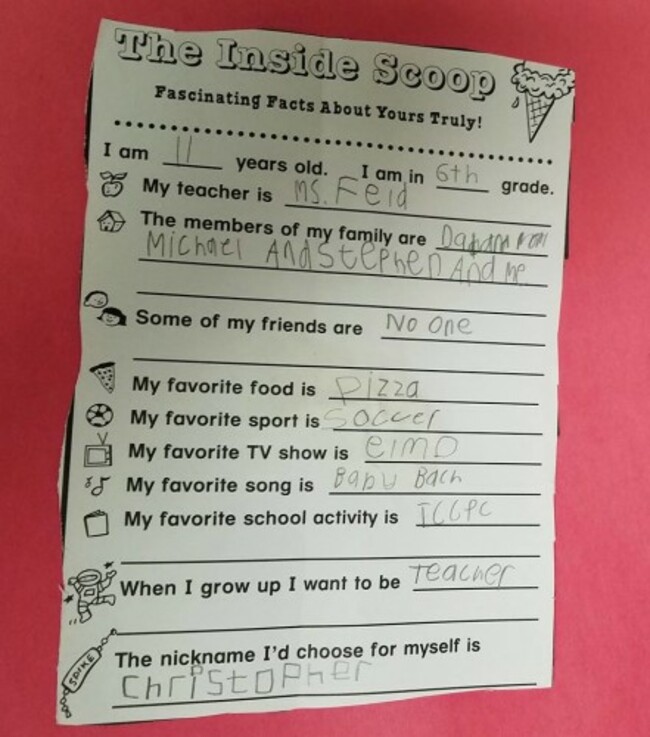 The Inside Scoop
Fascinating Facts About Yours Truly!
I am 11 years old. I am in 6th grade.
My teacher is Ms. Feld
The members of my family are
Michael And Stephen And Me
Some of my friends are No one
My favorite food is pizza
My favorite sport is soccer
My favorite TV show is elmo
My favorite song is Baby Bach
My favorite school activity is
When I grow up I want to be Teacher
SPIKE
The nickname I'd choose for myself is
Christopher